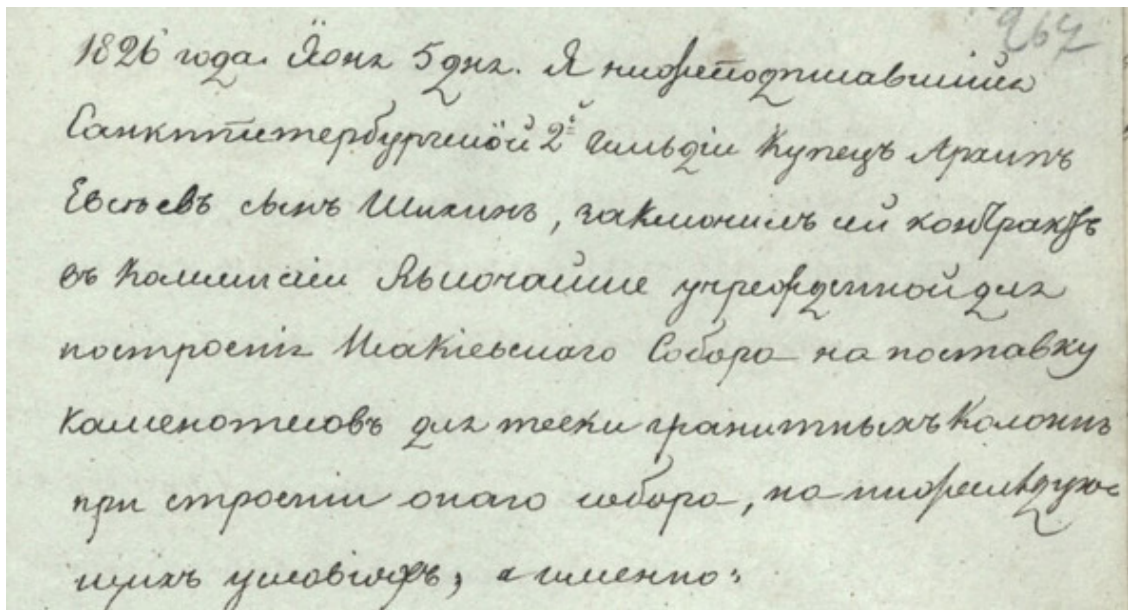 267
1826 года. Июня 5 дня. Я нижеподписавшійся
Санктпетербургской 2й Гильдіи Купецъ Архипъ
Евсѣевъ сынъ Шихинъ, заключилъ сей контрактъ
въ Коммиссіи Высочайше учрежденной для
построенія Исакіевскаго Собора на поставку
каменотесовъ для тески гранитныхъ Колоннъ
при строеніи онаго собора, на нижеслѣдую-
щихъ условіяхъ, а именно: